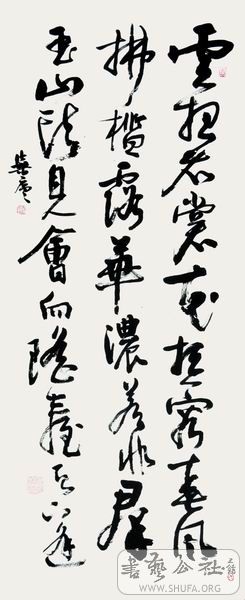 雲想衣裳花想容春風
拂檻露華濃若非群
玉山頭見會向瑤臺月下逢
書藝公社
WWW.SHUFA.ORG